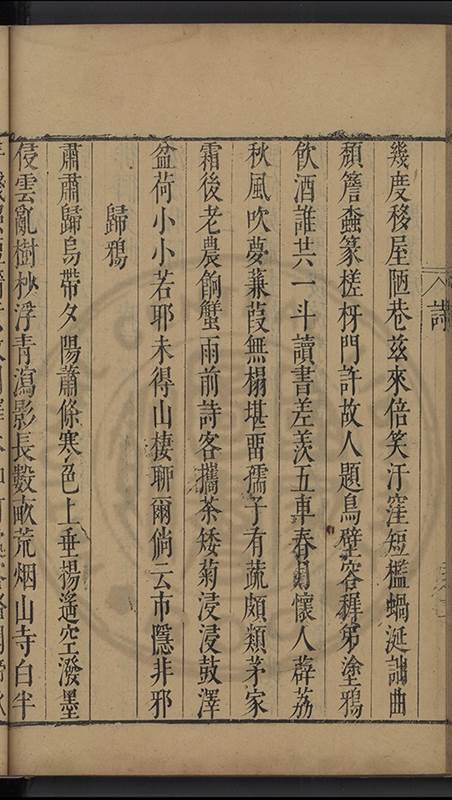 詩
幾度移屋陋巷茲來倍笑汙窪短檻蝸涎詘曲
頹簷蠧篆槎枒門許故人題鳥壁容穉弟塗鴉
飲酒誰共一斗讀書差羨五車春月懷人薜荔
秋風吹夢蒹葭無榻堪畱孺子有蔬頗類茅家
霜後老農餉蟹雨前詩客攜茶矮菊浸浸鼓澤
盆荷小小若耶未得山棲聊爾倘云市隱非邪
歸鴉
肅肅歸烏帶夕陽蕭條寒色上垂揚遙空潑墨
侵雲亂樹杪浮青瀉影長數畝荒烟山寺白半